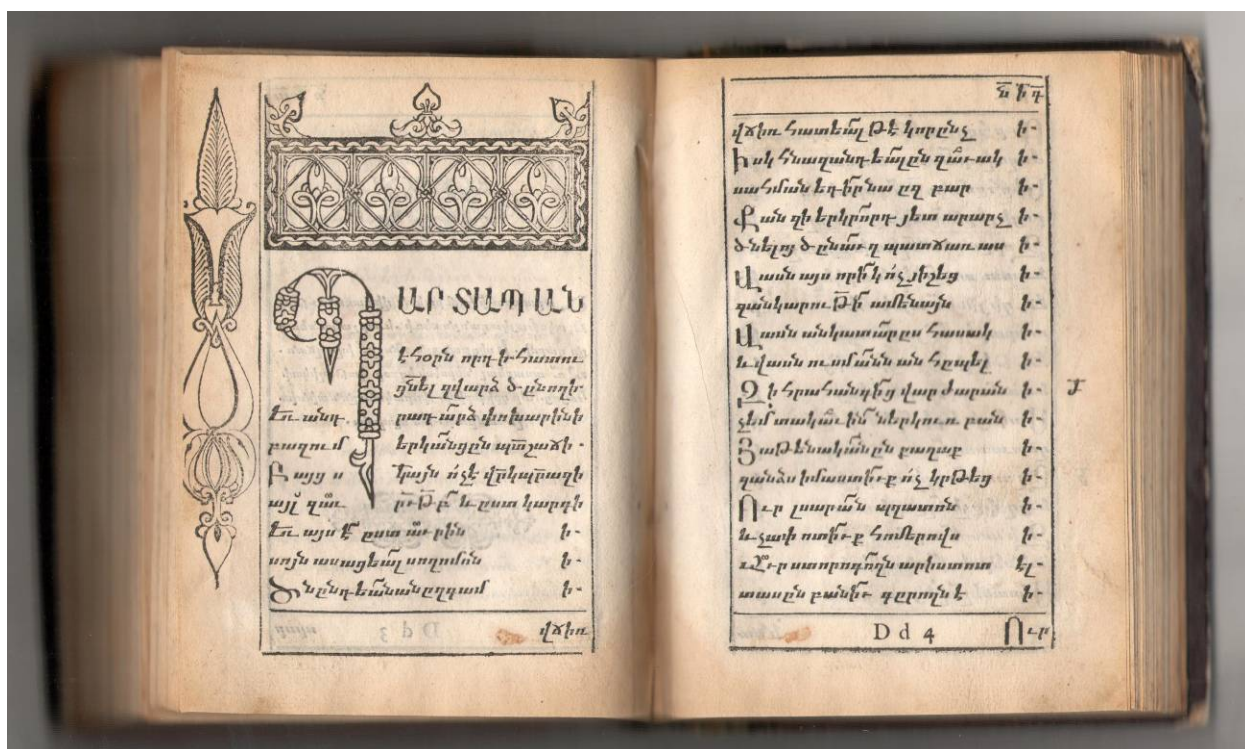 ՊԱՐՏԱՊԱՆ
է հօրն որդ ի հատու
ցնել զվարձ ծընողի
Եւ անդ րադարձ փոխարինի
բազում երկանցըն
Բայց ս կայն ոչ է
այլ զաւ և ըստ կարգի
Եւ այս է ըստ ի֊
սոյն ասացեալ սողոմոն
Ծնընդեանան ըղգամ ի֊
վճիռ
վճիռ հատեալ թէ կորընչ ի֊
Իսկ հնազանդեալըն զաւակ ի֊
սահման եդ իրնա ըղ բար ի֊
Քան զի երկրորդ յետ արարչ ի֊
ծնելոյ ծընաւղ պատճառ աս ի֊
Վասն այս որիկ ոչ յիշեց
զանկարութի ամենայն
Վասն անկատարըս հասակ ի֊
և վասն ուսմանն ան հըպել ի֊
Զի հրահանգից վարժարան ի֊
չեմ տակաւին ներկուռ բան ի֊
Յաթենականըն քաղաք ի֊
զանձս իմաստիւք ոչ կրթեց ի֊
Ուր լսարան պղատոն ի֊
և չափ ոտիւք հոմերովս ի֊
Ուր ստորոգողն արիստոտ էլ֊
տասըն բանիւ գըրողն է ի֊
Dd4
Ուր